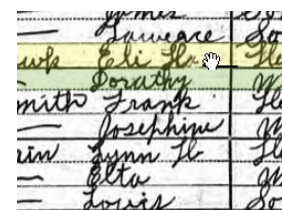 James
Lawrence So
Eli He
Dorathy W
mith Frank He
Josephine W
Lynn H He
Elta W
Louis So